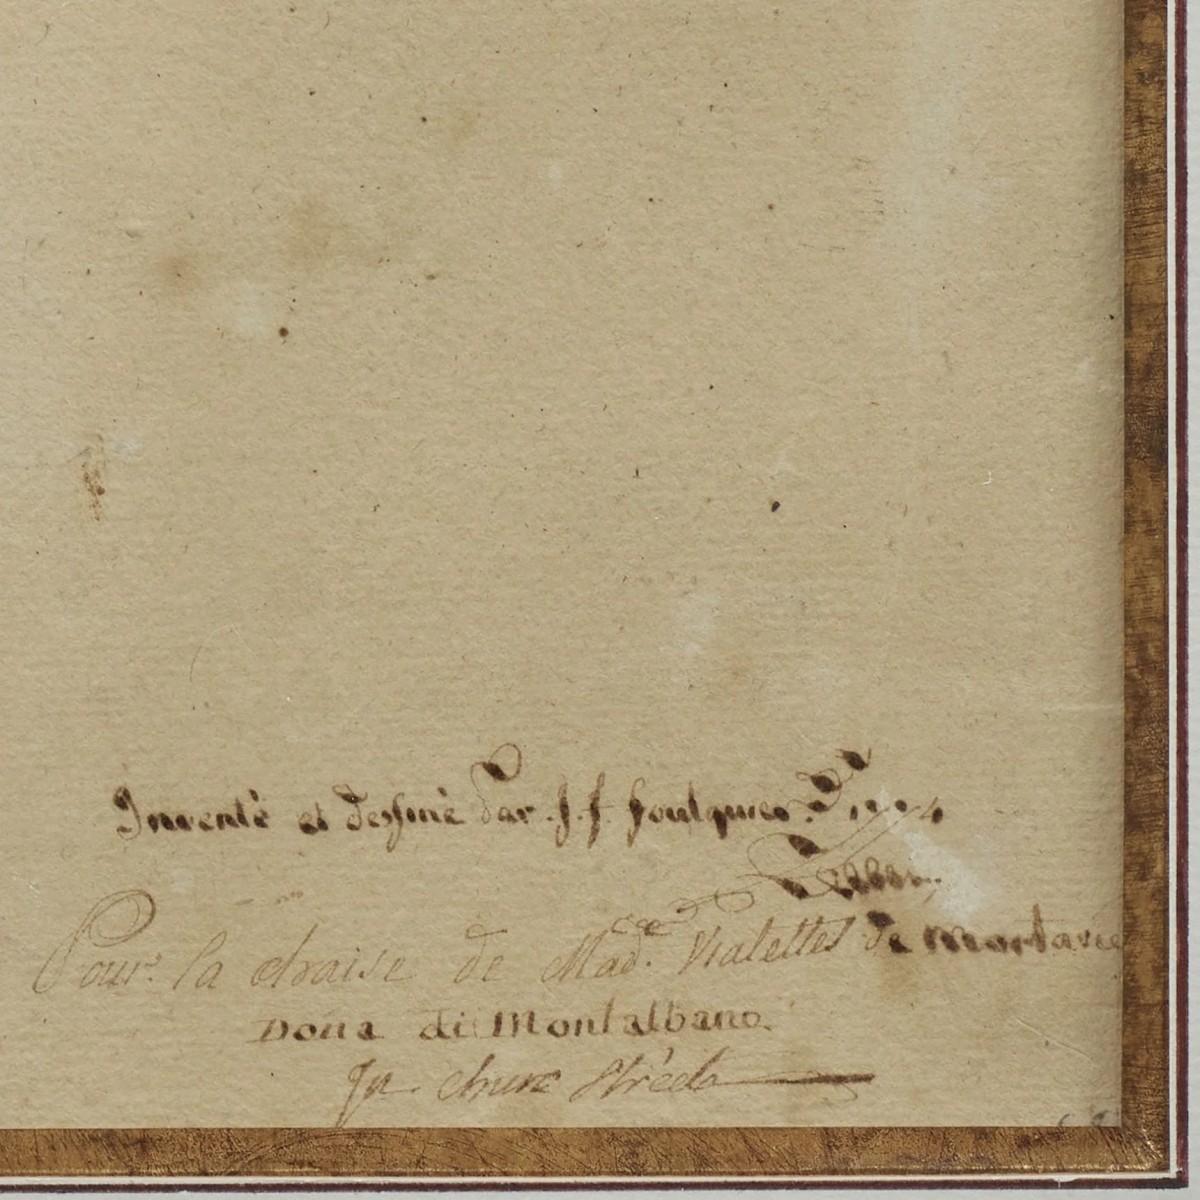 Inventé et dessiné Par J. f. foulquier
Pour la chaise de Mad.e Vialettes de mortarieu
Dona di Montalbano.